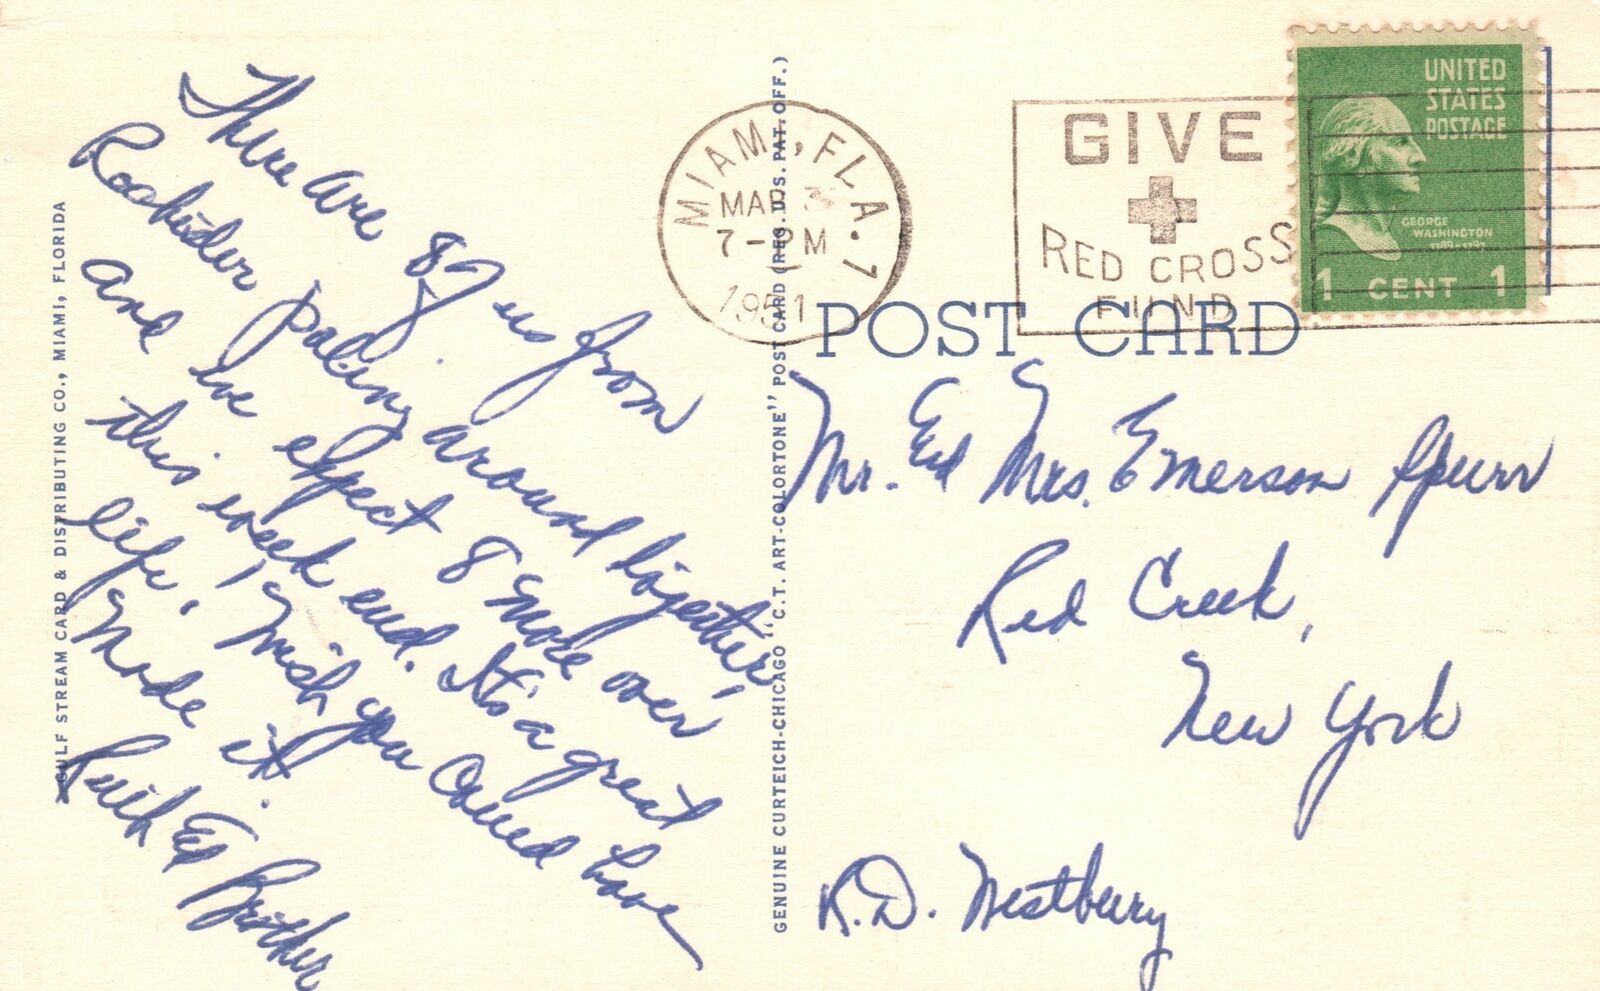 There are 8 of us from
Rochester paling around together,
and we expect 8 more over
this week end. It's a great
life, Wish you could have
made it.
Ruth Ed Brother
GULF STREAM CARD & DISTRIBUTING CO., MIAMI, FLORIDA
GENUINE CURTEICH-CHICAGO "C.T. ART-COLORTONE" POST CARD (REG. U.S. PAT. OFF.)
MIAMI, FLA. 7
MAR 3
7-PM
1951
GIVE
RED CROSS
FUND
UNITED
STATES
POSTAGE
GEORGE
WASHINGTON
1789-1797
1 CENT 1
POST CARD
Mr. and Mrs. Emerson Spurr
Red Creek,
New York
R.D. Westbury